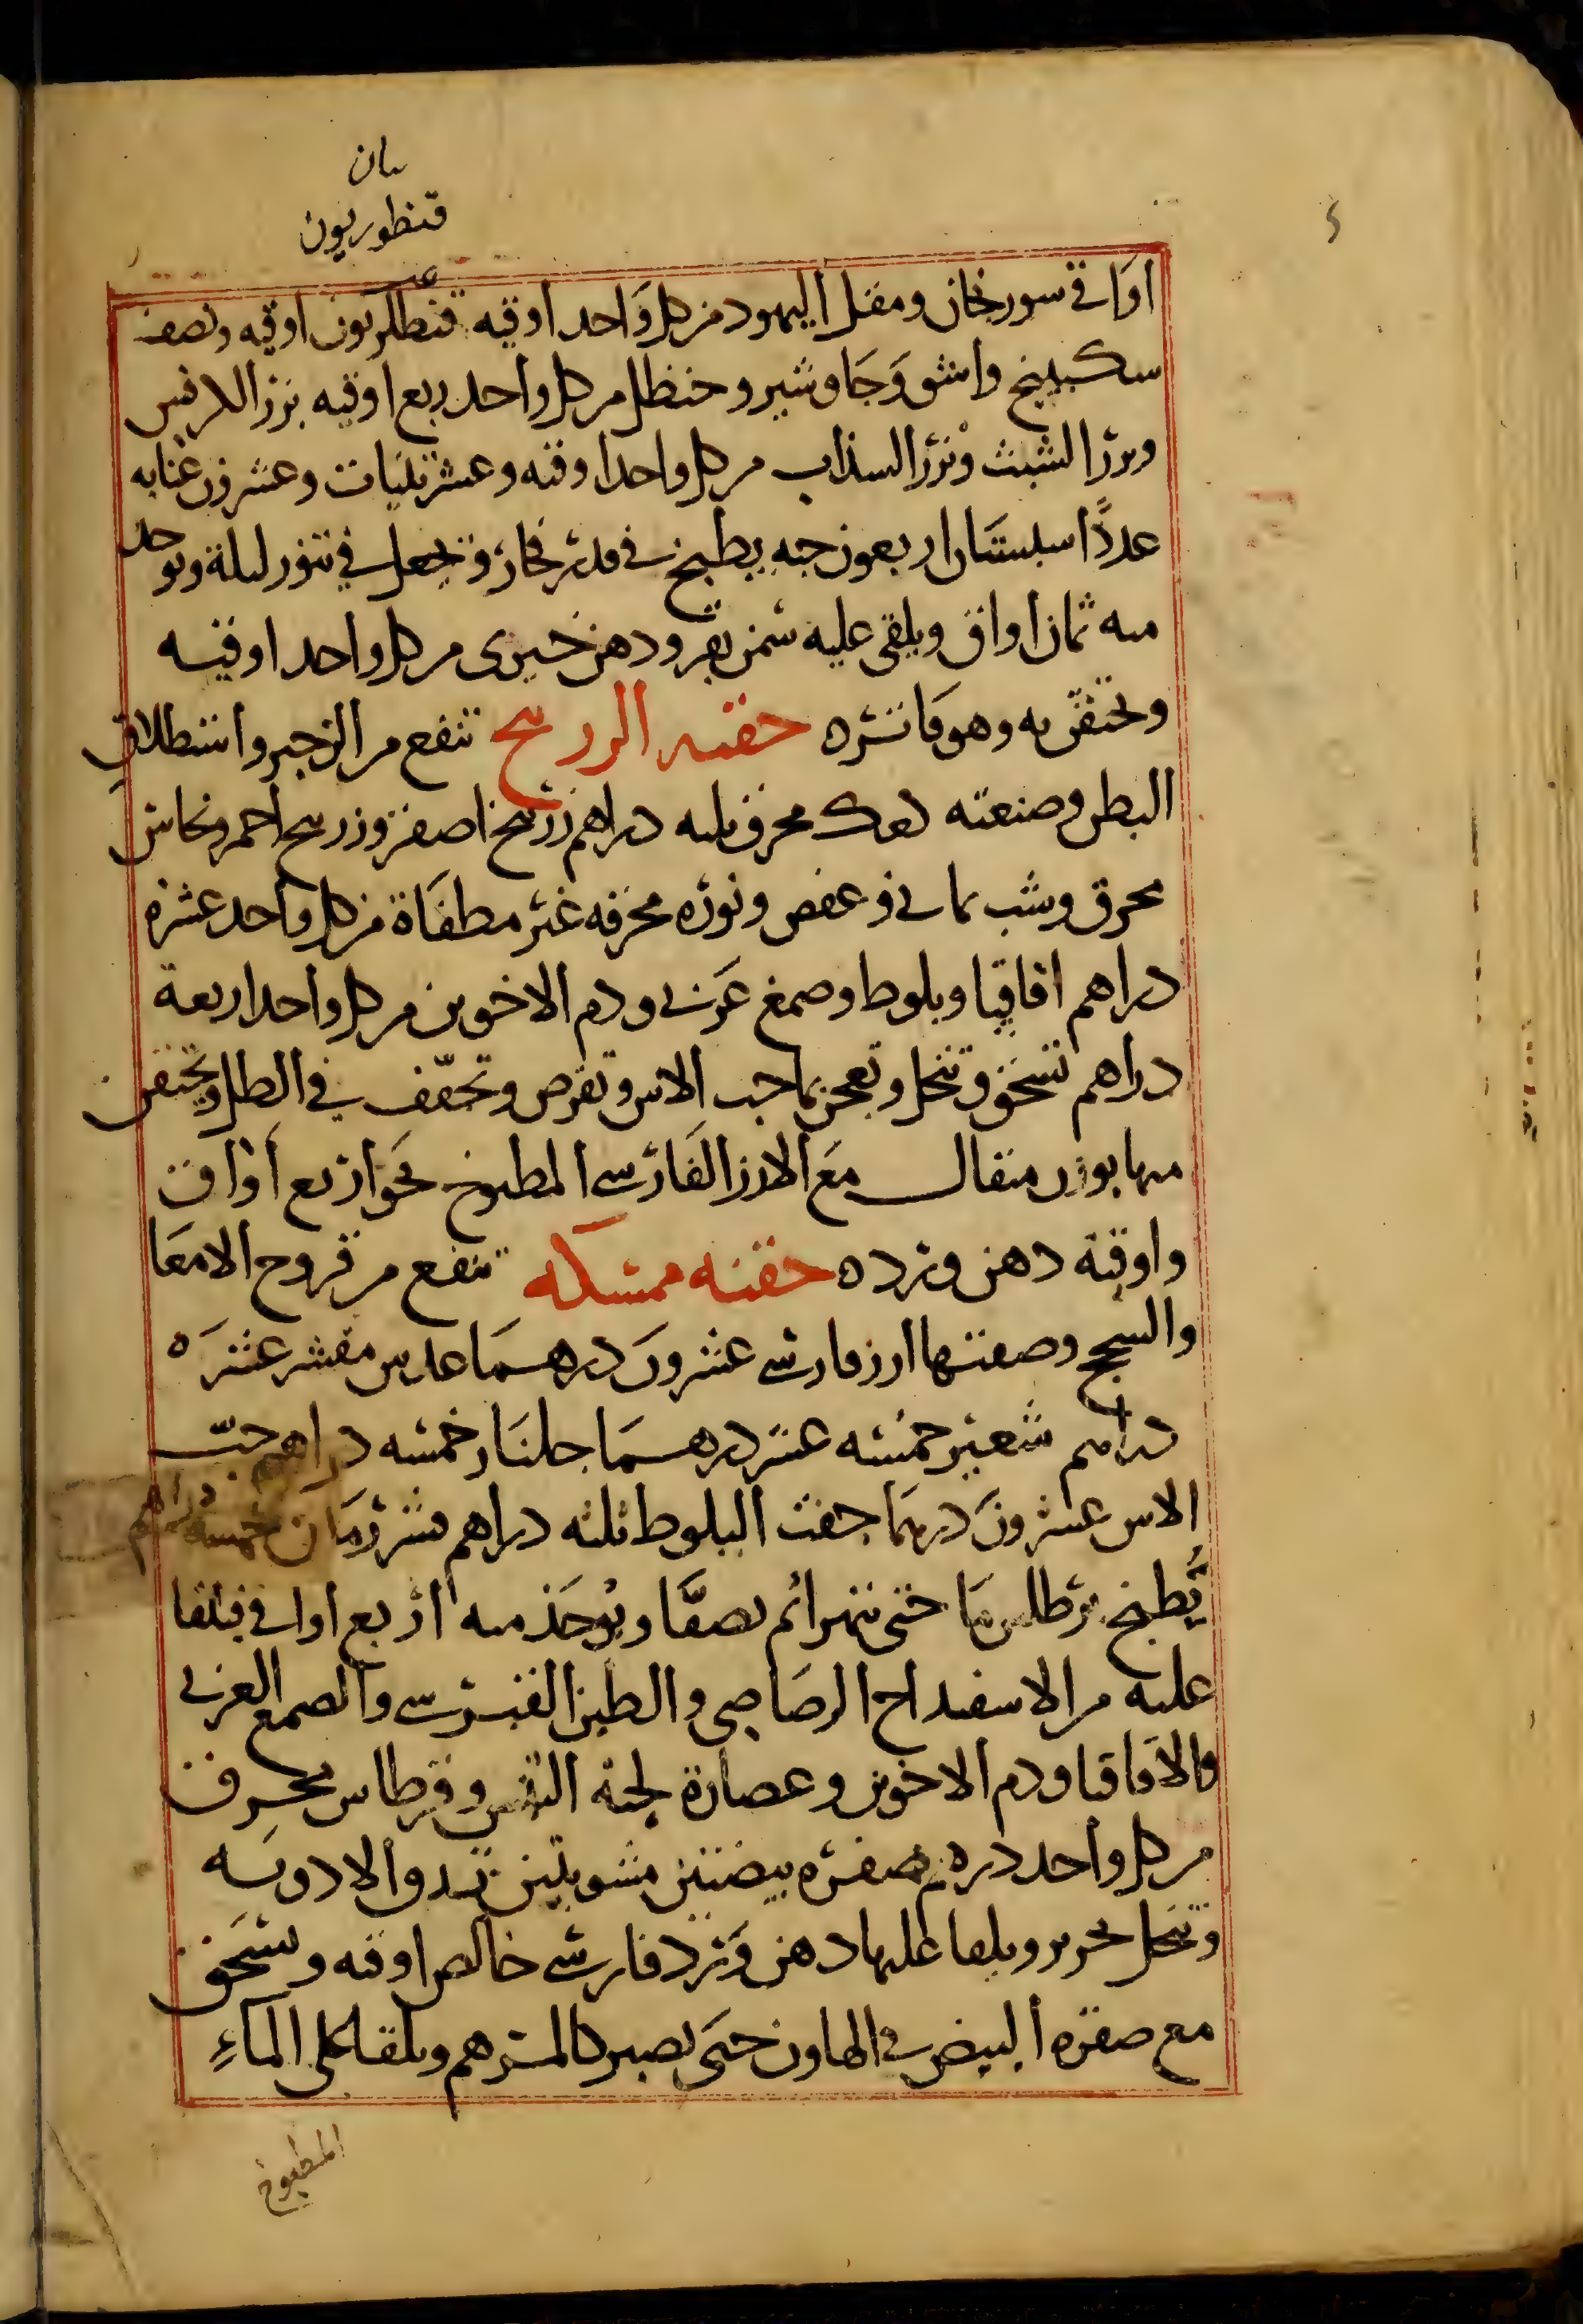 بيان
قنطوريون
اواق سورنجان ومقل اليهود من كل واحد اوقيه قنطوريون اوقيه ونصف
سكبينج واشق وجاوشير وحنظل من كل واحد ربع اوقيه بزر الكرفس
وبزر الشبث وبزر السذاب من كل واحد اوقيه وعشر تينات وعشرون عنابه
عدداً سبستان اربعون حبه يطبخ في قدر فخار ويجعل في تنور ليلة ويوخذ
منه ثمان اواق ويلقى عليه سمن بقر ودهن خيرى من كل واحد اوقيه
ويحتقن به وهو فاتره حقنه الزرنيخ تنفع من الزحير واستطلاق
البطن وصنعته ودع محرق ثلثه دراهم زرنيخ اصفر وزرنيخ احمر ونحاس
محرق وشب يماني وعفص ونوره محرقه غير مطفاة من كل واحد عشره
دراهم اقاقيا وبلوط وصمغ عربي ودم الاخوين من كل واحد اربعة
دراهم تسحق وتنخل وتعجن بماحب الاس وتقرص وتجفف في الظل ويحتقن
منها بوزن مثقال مع الارز الفارسي المطبوخ نحو اربع اواق
واوقية دهن ورده حقنه ممسكه تنفع من قروح الامعا
والسحج وصفتها ارز فارسي عشرون درهما عدس مقشر عشره
دراهم شعير خمسه عشر درهما جلنار خمسه دراهم حب
الاس عشرون درهما جفت البلوط ثلثه دراهم قشر رمان خمسه دراهم
يطبخ برطلين ما حتى يتهرا ثم يصفا ويوخذ منه اربع اواق فيلقا
عليه من الاسفيداج الرصاصي والطين القبرسي والصمغ العربي
والاقاقيا ودم الاخوين وعصارة لحية التيس وقرطاس محرق
من كل واحد درهم صفره بيضتين مشويتين تدق الادويه
وتنخل بحرير ويلقا عليها دهن ورد فارسي خالص اوقيه ويسحق
مع صفره البيض في الهاون حتى يصير كالمرهم ويلقا على الماءِ
المطبوخ